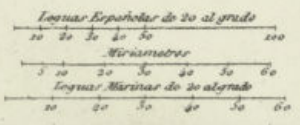 Leguas Españolas de 20 al grado
10 20 30 40 50 100
Miriametros
5 10 20 30 40 50 60
Leguas Marinas de 20 al grado
10 20 30 40 50 60